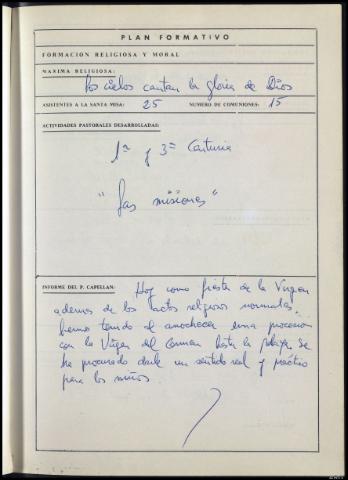 PLAN FORMATIVO
FORMACION RELIGIOSA Y MORAL
MAXIMA RELIGIOSA:
Los cielos cantan la gloria de Dios
ASISTENTES A LA SANTA MISA: 25 NUMERO DE COMUNIONES: 15
ACTIVIDADES PASTORALES DESARROLLADAS:
1ª y 3ª Centuria
"Las misiones"
INFORME DEL P. CAPELLAN: Hoy como fiesta de la Virgen
ademas de los actos religiosos normales,
hemos tenido al anochecer una procesion
con la Virgen del Carmen hasta la playa. Se
ha procurado darle un sentido real y práctico
para los niños